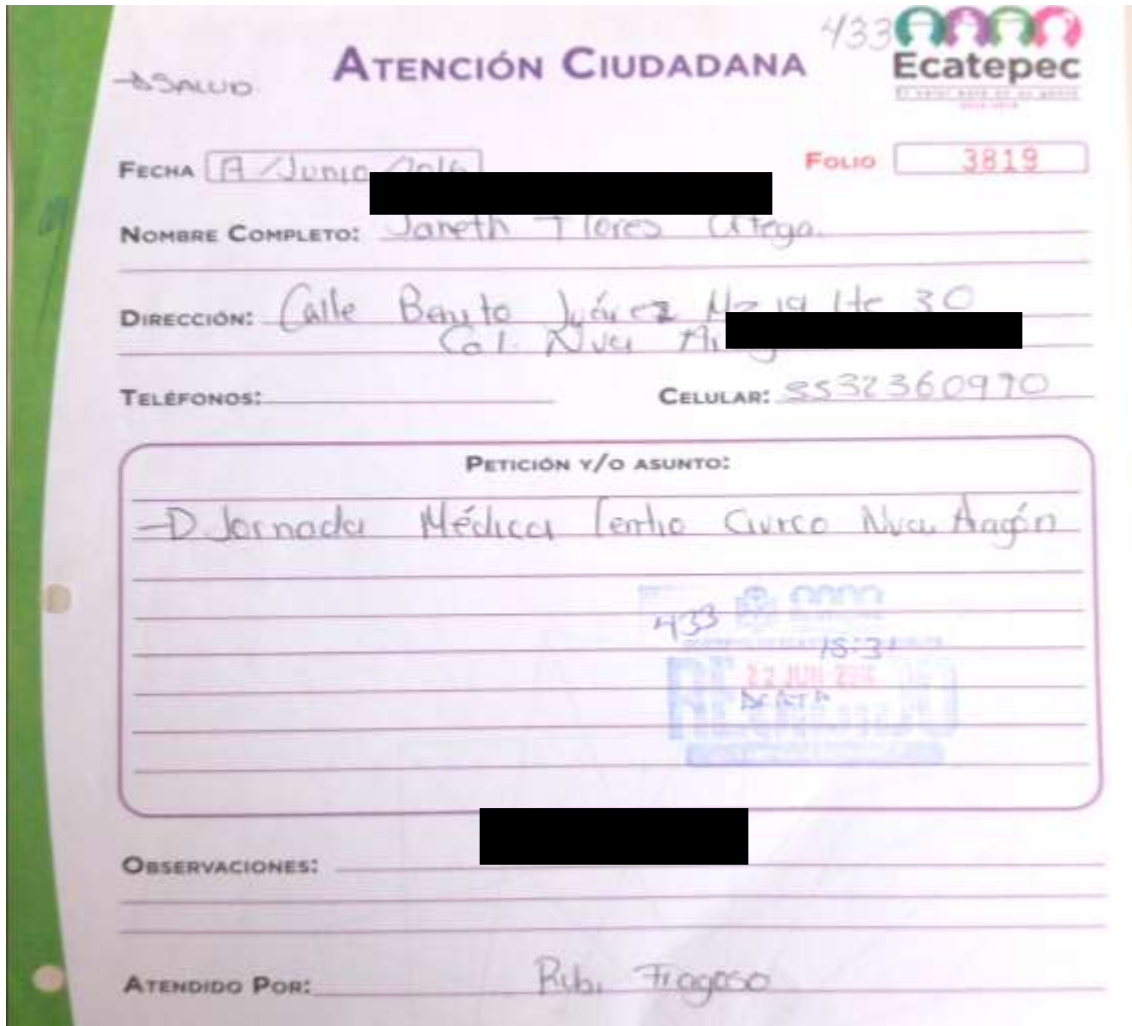 433
Ecatepec
ATENCIÓN CIUDADANA
SALUD
FECHA /Junio/2016
FOLIO 3819
NOMBRE COMPLETO: Janeth Flores
DIRECCIÓN: Calle Benito Juárez Mz 19 Lte 30
Col. Nva
TELÉFONOS: CELULAR: 5532360970
PETICIÓN Y/O ASUNTO:
Jornada Médica Centro Civico Nva. Aragón
433
15:31
22 JUN
RECIBIDO
OBSERVACIONES:
ATENDIDO POR: Rubi Fragoso